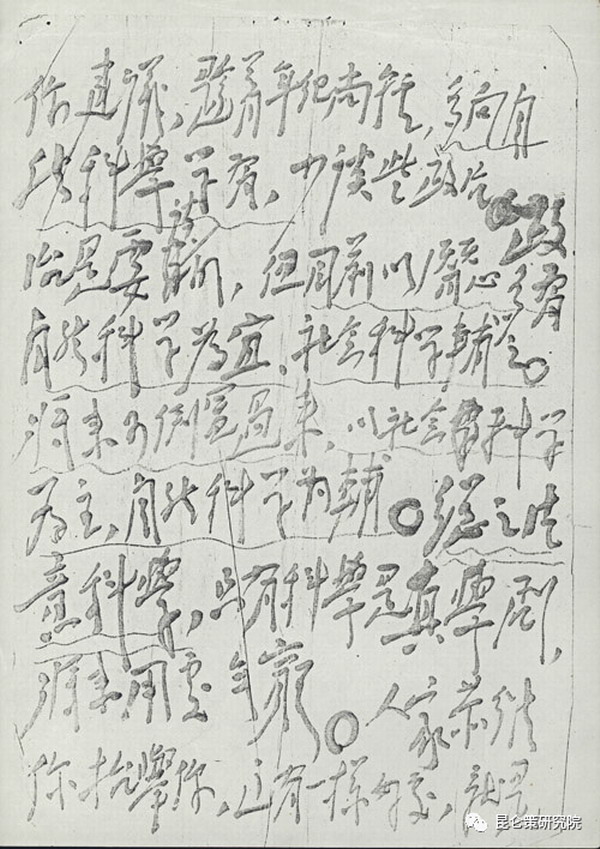 们建議，趁着年纪尚轻，多向自
然科學学習，少谈些政治。政
治是要谈的，但目前以潜心多習
自然科学为宜，社会科学輔之。
将来可倒置过来，以社会科学
为主，自然科学为輔。總之注
意科學，只有科學是真學问，
将来用处无窮。人家恭维
你抬舉你，这有一样好处，就是
昆仑策研究院